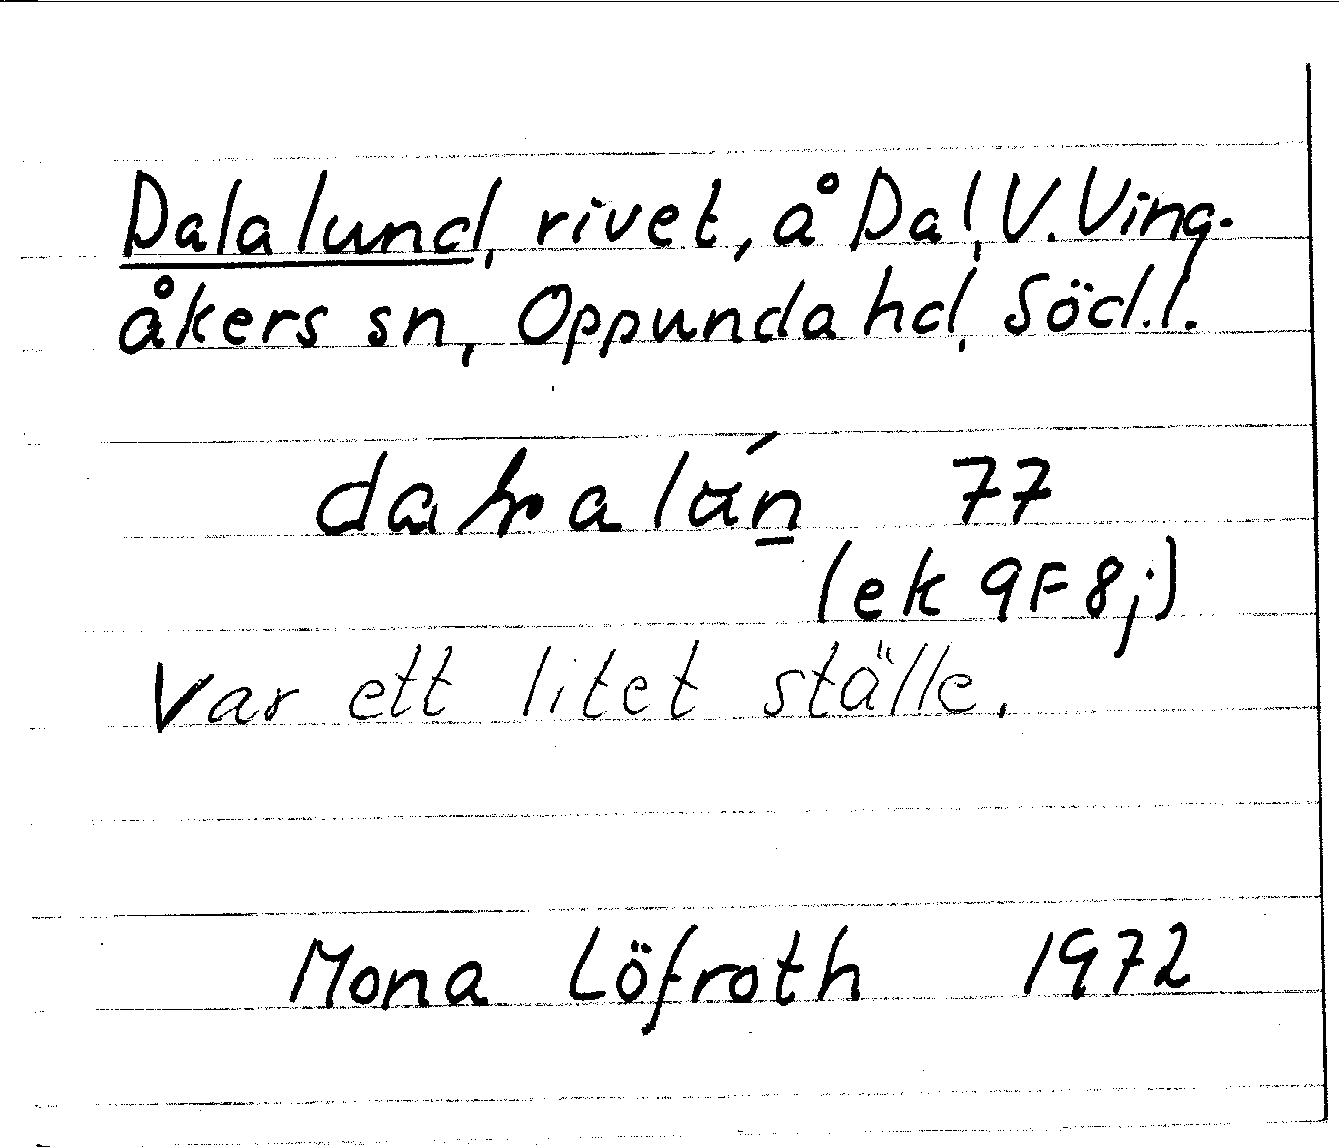 Dalalund, rivet, å Dal, V. Ving-
åkers sn, Oppunda hd, Södl.
77
(ek 9F8j)
Var ett litet ställe.
Mona Löfroth 1972